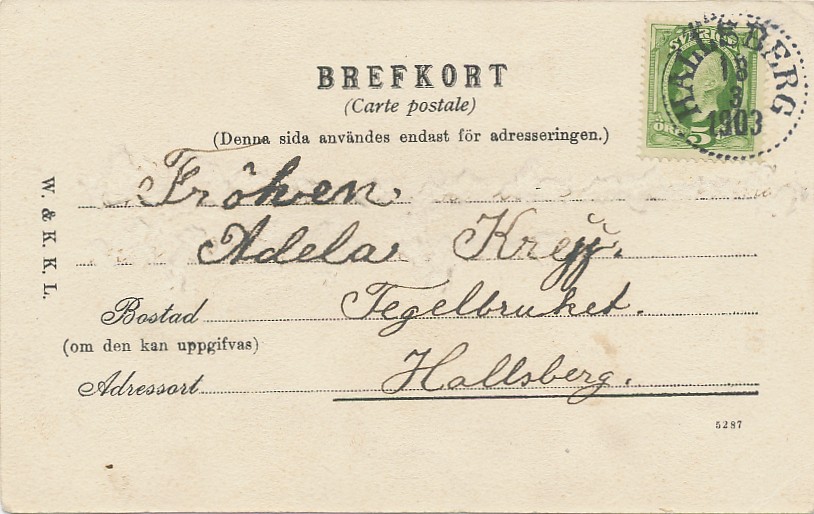 BREFKORT
(Carte postale)
(Denna sida användes endast för adresseringen.)
SVERIGE
5
ÖRE
HALLSBERG
18
3
1903
W. & K. K. L.
Fröken
Adela
Bostad Tegelbruket.
(om den kan uppgifvas)
Adressort Hallsberg.
5287